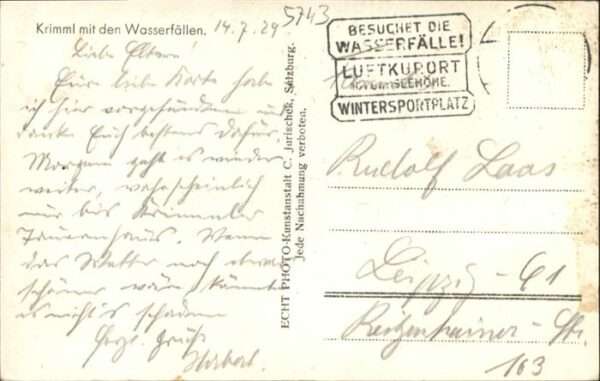 Krimml mit den Wasserfällen. 14.7.29
5743
Liebe Eltern!
Für liebe Karte habe
ich hier vorgefunden und
danke Euch bestens dafür.
Morgen geht es wieder
weiter, wahrscheinlich
nur bis Krimmler
Tauernhaus. Wenn
das Wetter noch etwas
schöner wäre könnte
es nicht's schaden
Herzl. Grüße
Herbert.
ECHT PHOTO-Kunstanstalt C. Jurischek, Salzburg.
Jede Nachahmung verboten.
BESUCHET DIE
WASSERFÄLLE!
LUFTKURORT
WINTERSPORTPLATZ
Rudolf Laas
Leipzig-
Reitzenhainer-Str.
163